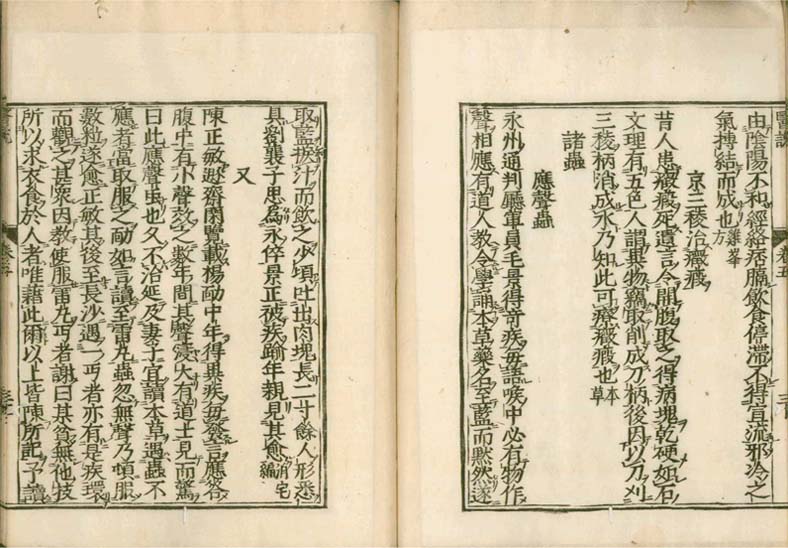 由陰陽不和經絡痞膈飲食停滯不得宣流邪冷之
氣搏結而成也雞峯方
京三稜治癥瘕
昔人患癥瘕死遺言令開腹取之得病塊乾硬如石
文理有五色人謂異物竊取削成刀柄後因以刀刈
三稜柄消成水乃知此可療癥瘕也本草
諸蟲
應聲蟲
永州通判廳軍員毛景得奇疾每語喉中必有物作
聲相應有道人教令學誦本草藥名至藍而默然遂
取藍捩汁而飲之少頃吐出肉塊長二寸餘人形悉
具劉襄子思爲永倅景正被疾踰年親見其愈泊宅編
又
陳正敏遯齋閑覽載楊勔中年得異疾每發言應答
腹中有小聲效之數年間其聲浸大有道士見而驚
曰此應聲虫也久不治延及妻子宜讀本草遇蟲不
應者當取服之勔如言讀至雷丸蟲忽無聲乃頓服
數粒遂愈正敏其後至長沙遇一丐者亦有是疾環
而觀之甚衆因教使服雷丸丐者謝曰某貧無他技
所以求衣食於人者唯藉此爾以上皆陳所記予讀